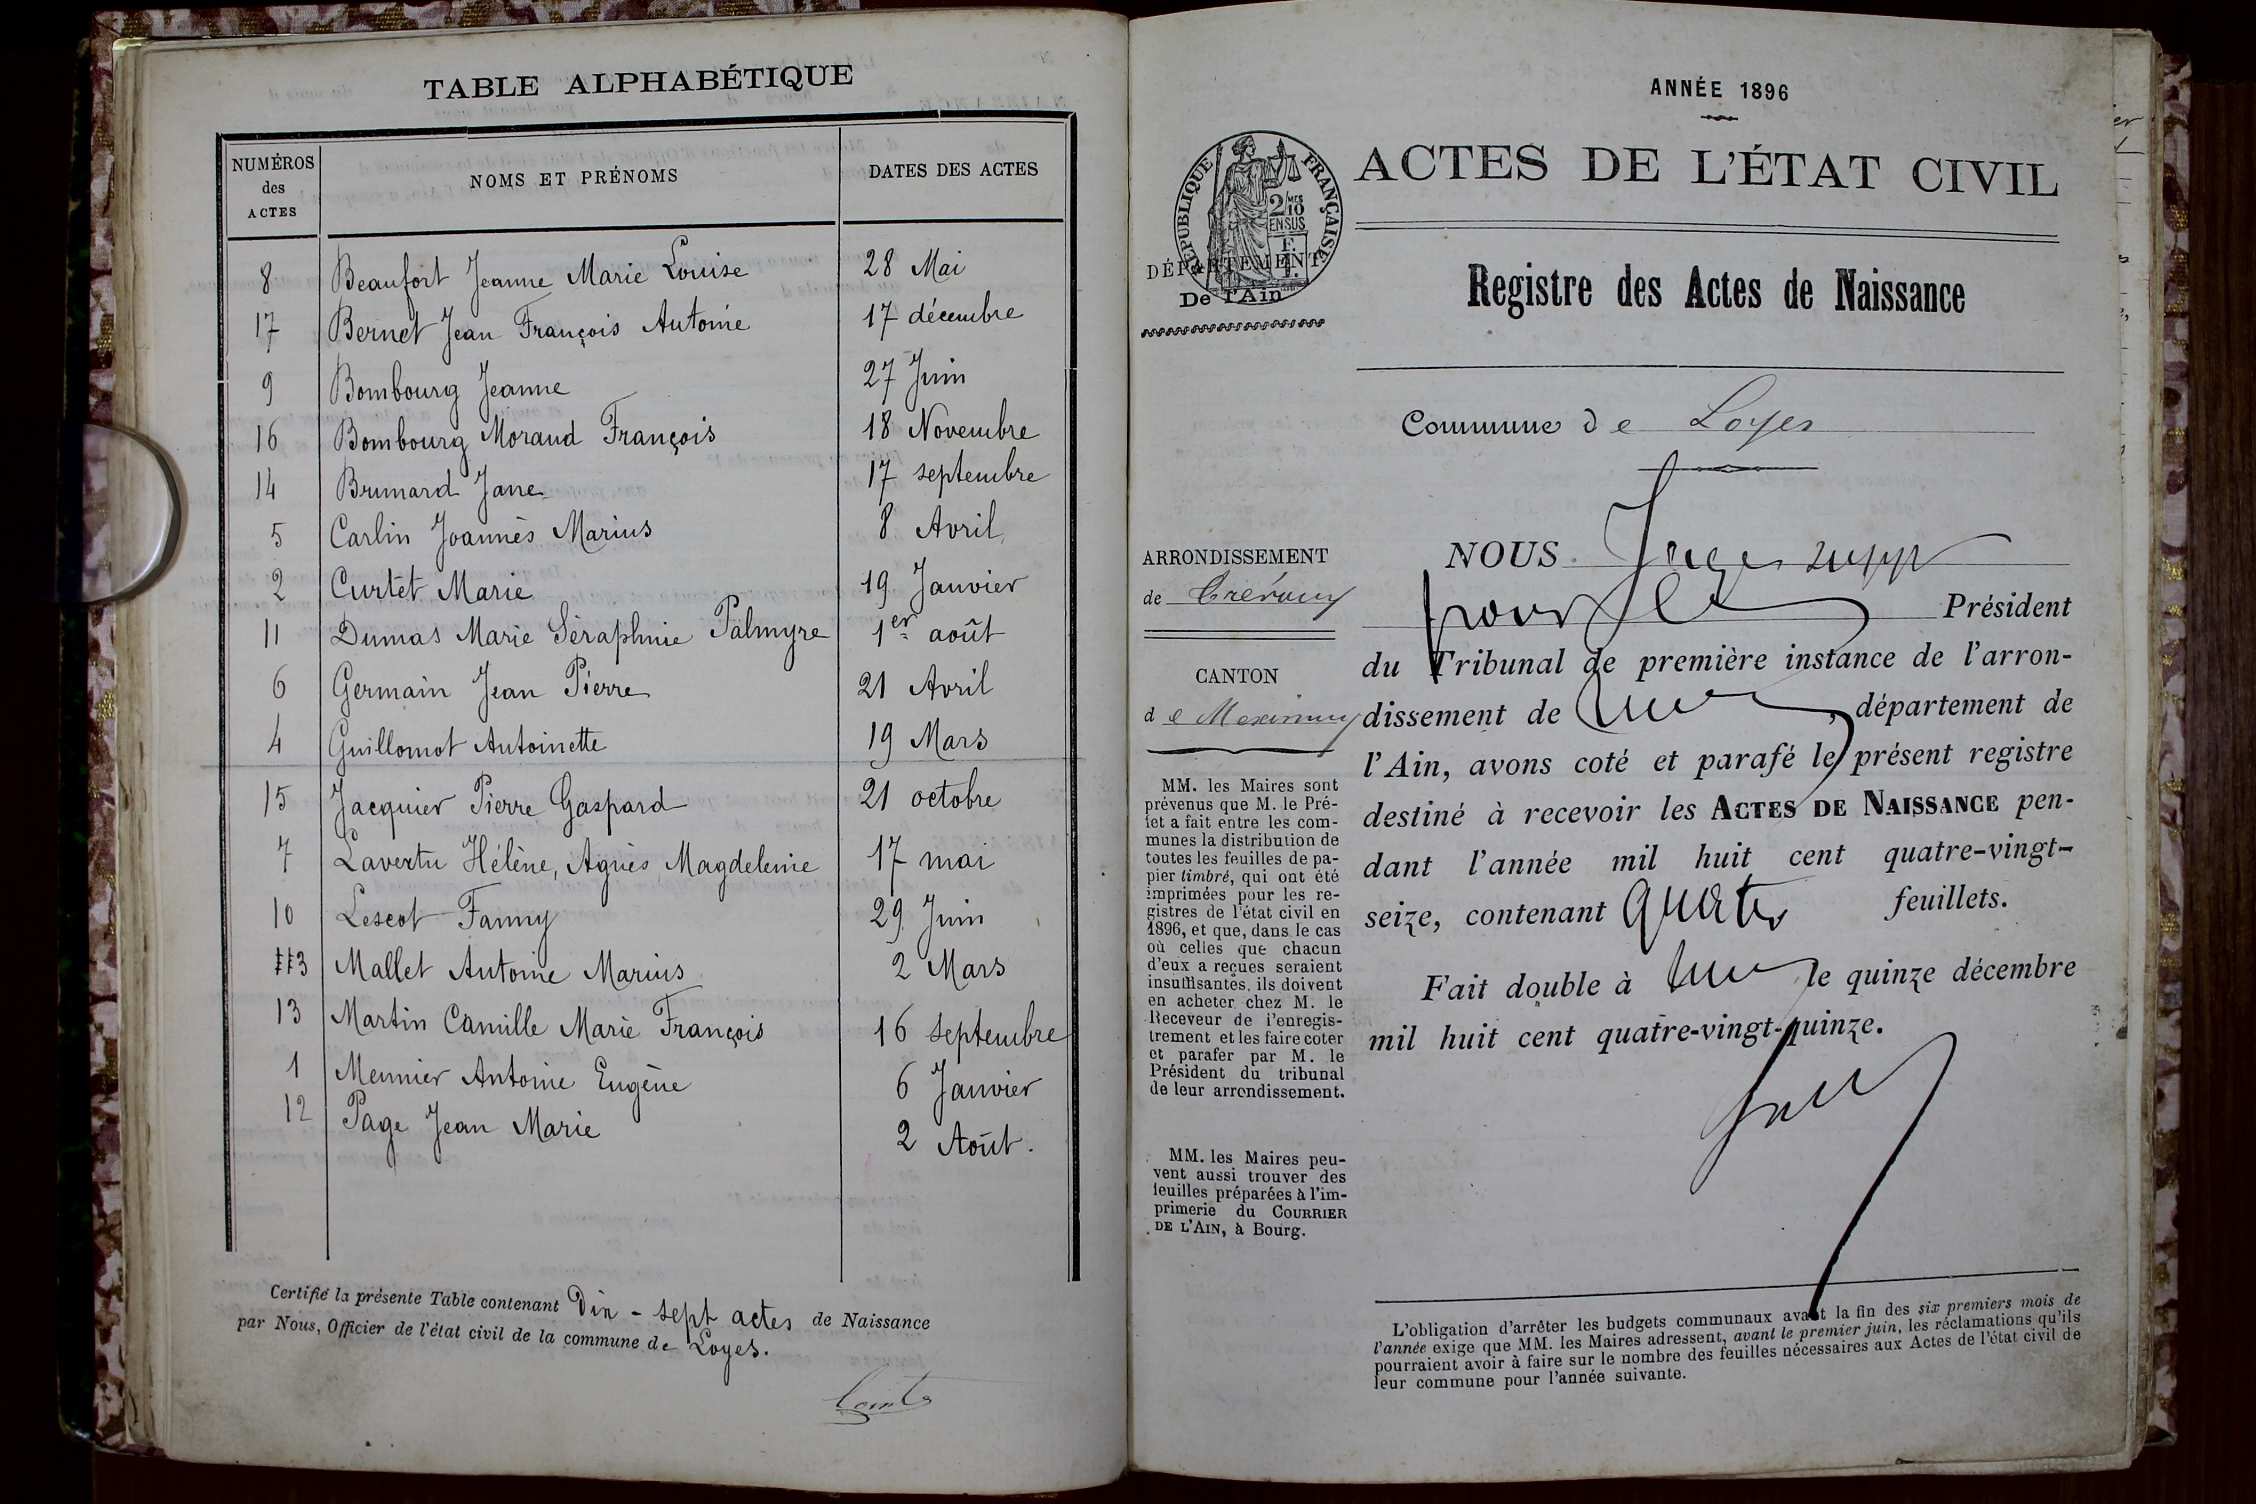 TABLE ALPHABÉTIQUE
NUMÉROS des ACTES NOMS ET PRÉNOMS DATES DES ACTES
8 Beaufort Jeanne Marie Louise 28 Mai
17 Bernet Jean François Antoine 17 décembre
9 Bombourg Jeanne 27 Juin
16 Bombourg Morand François 18 Novembre
14 Brunard Jane 17 septembre
5 Carlin Joannès Marius 8 Avril
2 Curtet Marie 19 Janvier
11 Dumas Marie Séraphine Palmyre 1er août
6 Germain Jean Pierre 21 Avril
4 Guillomot Antoinette 19 Mars
15 Jacquier Pierre Gaspard 21 octobre
7 Lavertu Hélène, Agnès Magdeleine 17 mai
10 Lescot Fanny 29 Juin
3 Mallet Antoine Marius 2 Mars
13 Martin Camille Marie François 16 septembre
1 Meunier Antoine Eugène 6 Janvier
12 Page Jean Marie 2 Août.
Certifié la présente Table contenant Dix-sept actes de Naissance
par Nous, Officier de l'état civil de la commune de Loyes.
ANNÉE 1896
ACTES DE L'ÉTAT CIVIL
RÉPUBLIQUE FRANÇAISE
2 MES 10
EN SUS
DÉPARTEMENT
De l'Ain
Registre des Actes de Naissance
Commune de Loyes
ARRONDISSEMENT
de Trévoux
CANTON
de Meximieux
MM. les Maires sont
prévenus que M. le Pré-
fet a fait entre les com-
munes la distribution de
toutes les feuilles de pa-
pier timbré, qui ont été
imprimées pour les re-
gistres de l'état civil en
1896, et que, dans le cas
où celles que chacun
d'eux a reçues seraient
insuffisantes, ils doivent
en acheter chez M. le
Receveur de l'enregis-
trement et les faire coter
et parafer par M. le
Président du tribunal
de leur arrondissement.
MM. les Maires peu-
vent aussi trouver des
feuilles préparées à l'im-
primerie du COURRIER
DE L'AIN, à Bourg.
NOUS Juge supp
pour le Président
du Tribunal de première instance de l'arron-
dissement de , département de
l'Ain, avons coté et parafé le présent registre
destiné à recevoir les ACTES DE NAISSANCE pen-
dant l'année mil huit cent quatre-vingt-
seize, contenant feuillets.
Fait double à le quinze décembre
mil huit cent quatre-vingt-quinze.
L'obligation d'arrêter les budgets communaux avant la fin des six premiers mois de
l'année exige que MM. les Maires adressent, avant le premier juin, les réclamations qu'ils
pourraient avoir à faire sur le nombre des feuilles nécessaires aux Actes de l'état civil de
leur commune pour l'année suivante.